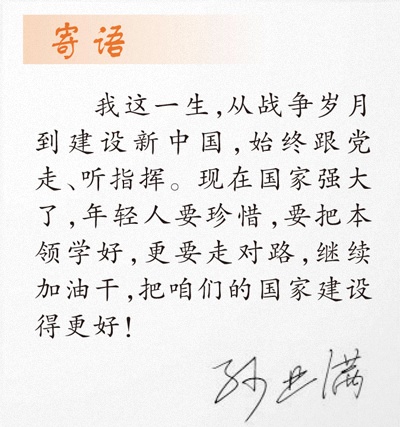 寄语
我这一生,从战争岁月
到建设新中国,始终跟党
走、听指挥。现在国家强大
了,年轻人要珍惜,要把本
领学好,更要走对路,继续
加油干,把咱们的国家建设
得更好!
孙士满